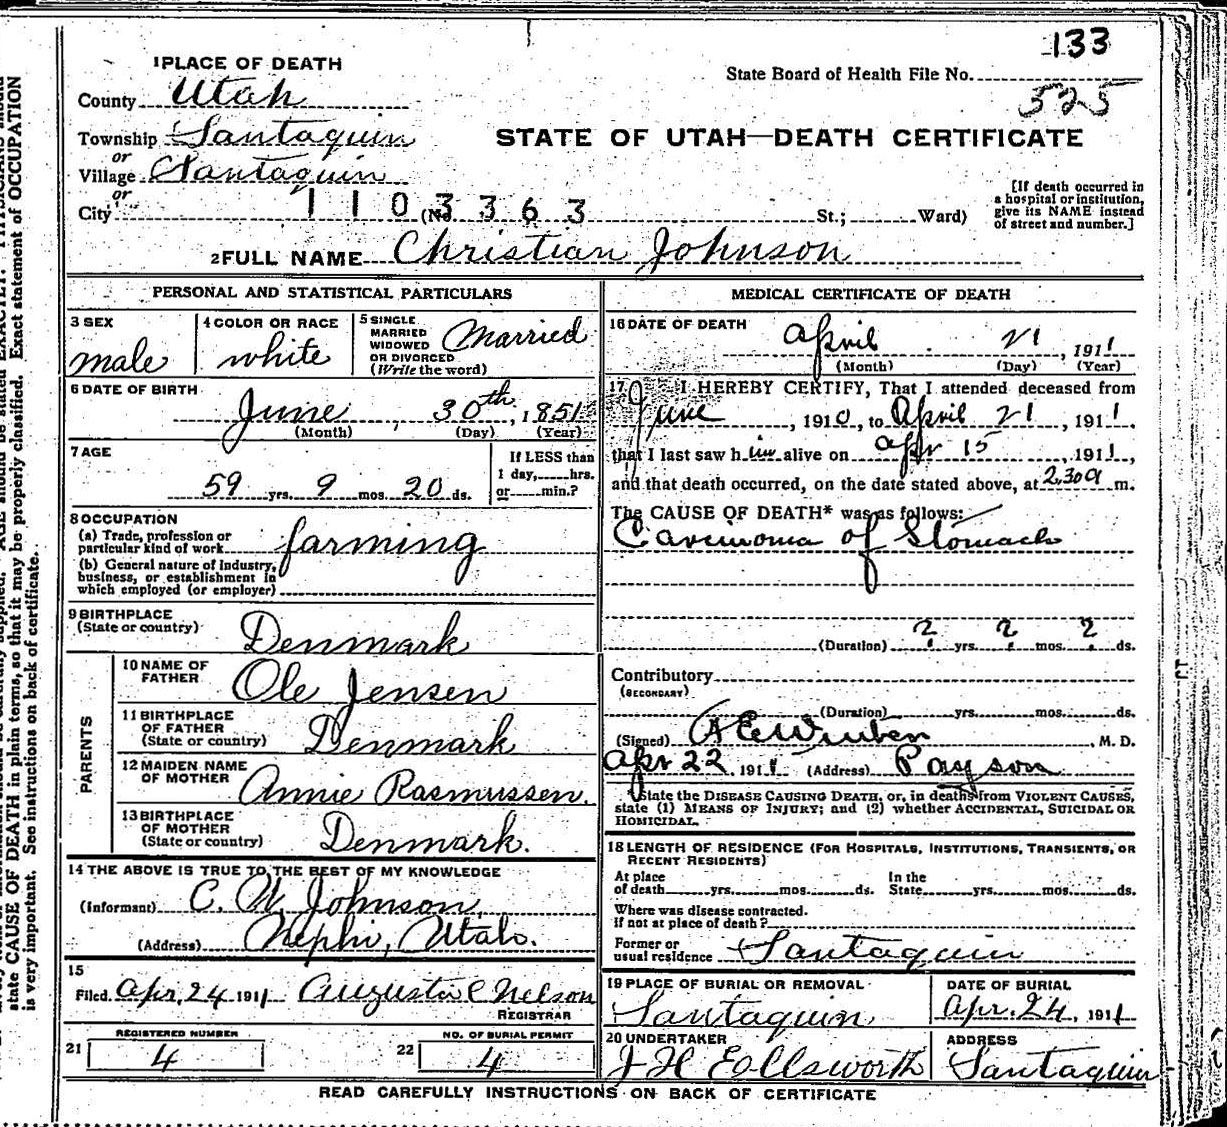 133
1 PLACE OF DEATH
State Board of Health File No.
525
County Utah
Township Santaquin
STATE OF UTAH—DEATH CERTIFICATE
or
Village Santaquin
or
City (No. St.; Ward)
1103363
[If death occurred in
a hospital or institution,
give its NAME instead
of street and number.]
2 FULL NAME Christian Johnson
PERSONAL AND STATISTICAL PARTICULARS
3 SEX
male
4 COLOR OR RACE
white
5 SINGLE
MARRIED
WIDOWED
OR DIVORCED
(Write the word)
Married
6 DATE OF BIRTH
June 30th, 1851
(Month) (Day) (Year)
7 AGE
59 yrs. 9 mos. 20 ds.
If LESS than
1 day, hrs.
or min.?
8 OCCUPATION
(a) Trade, profession or
particular kind of work farming
(b) General nature of industry,
business, or establishment in
which employed (or employer)
9 BIRTHPLACE
(State or country) Denmark
PARENTS
10 NAME OF
FATHER Ole Jensen
11 BIRTHPLACE
OF FATHER
(State or country) Denmark
12 MAIDEN NAME
OF MOTHER Annie Rasmussen.
13 BIRTHPLACE
OF MOTHER
(State or country) Denmark.
14 THE ABOVE IS TRUE TO THE BEST OF MY KNOWLEDGE
(Informant) C. W. Johnson,
(Address) Nephi, Utah.
15
Filed Apr, 24 1911 Augusta C Nelson
REGISTRAR
REGISTERED NUMBER
21 4
NO. OF BURIAL PERMIT
22 4
MEDICAL CERTIFICATE OF DEATH
16 DATE OF DEATH
April 21, 1911
(Month) (Day) (Year)
17 I HEREBY CERTIFY, That I attended deceased from
June, 1910, to April 21, 1911.
that I last saw him alive on apr 15 1911,
and that death occurred, on the date stated above, at 2.30a m.
The CAUSE OF DEATH* was as follows:
Carcinoma of Stomach
(Duration) ? yrs. ? mos. ? ds.
Contributory
(SECONDARY)
(Duration) yrs. mos. ds.
(Signed) , M. D.
Apr 22, 1911 (Address) Payson
*State the DISEASE CAUSING DEATH, or, in deaths from VIOLENT CAUSES,
state (1) MEANS OF INJURY; and (2) whether ACCIDENTAL, SUICIDAL OR
HOMICIDAL.
18 LENGTH OF RESIDENCE (FOR HOSPITALS, INSTITUTIONS, TRANSIENTS, OR
RECENT RESIDENTS)
At place
of death yrs. mos. ds.
In the
State yrs. mos. ds.
Where was disease contracted.
If not at place of death?
Former or
usual residence Santaquin
19 PLACE OF BURIAL OR REMOVAL
Santaquin
DATE OF BURIAL
Apr. 24, 1911
20 UNDERTAKER
J H Ellsworth
ADDRESS
Santaquin
READ CAREFULLY INSTRUCTIONS ON BACK OF CERTIFICATE
state CAUSE OF DEATH in plain terms, so that it may be properly classified. Exact statement of OCCUPATION
is very important. See instructions on back of certificate.